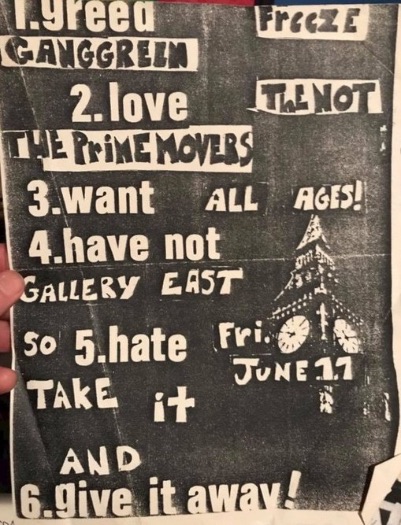 1.greed
FreeZE
GANGGREEN
2.love
The NOT
THE PriME MOVERS
3.want ALL AGES!
4.have not
GALLERY EAST
so 5.hate Fri.
JUNE 11
TAKE it
AND
6.give it away!